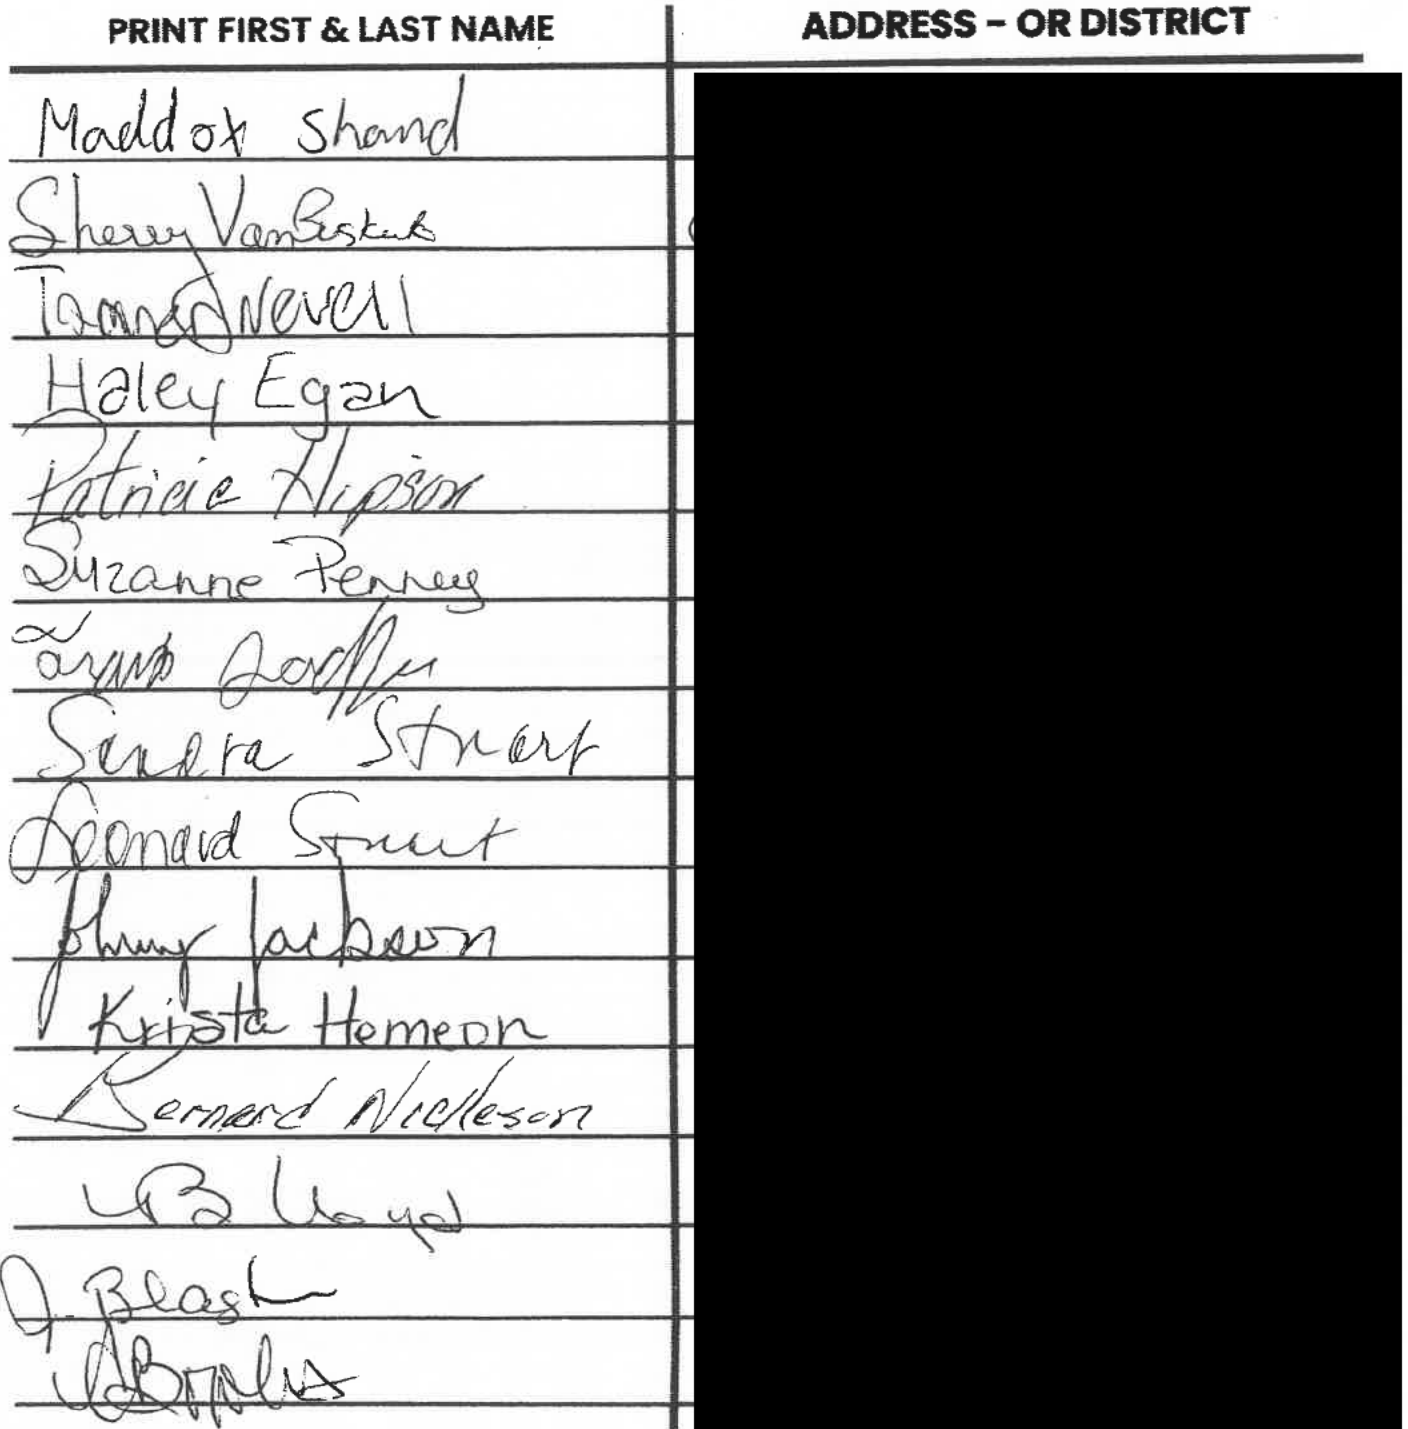 PRINT FIRST & LAST NAME ADDRESS – OR DISTRICT
Maddox Shand
Sherry VanBuskirk
Nevell
Haley Egan
Patricia Hipson
Suzanne Penney
Sandra Stuart
Leonard Stuart
Johnny Jackson
Krista Hemeon
Bernard Nickleson
B Lloyd
J. Beash